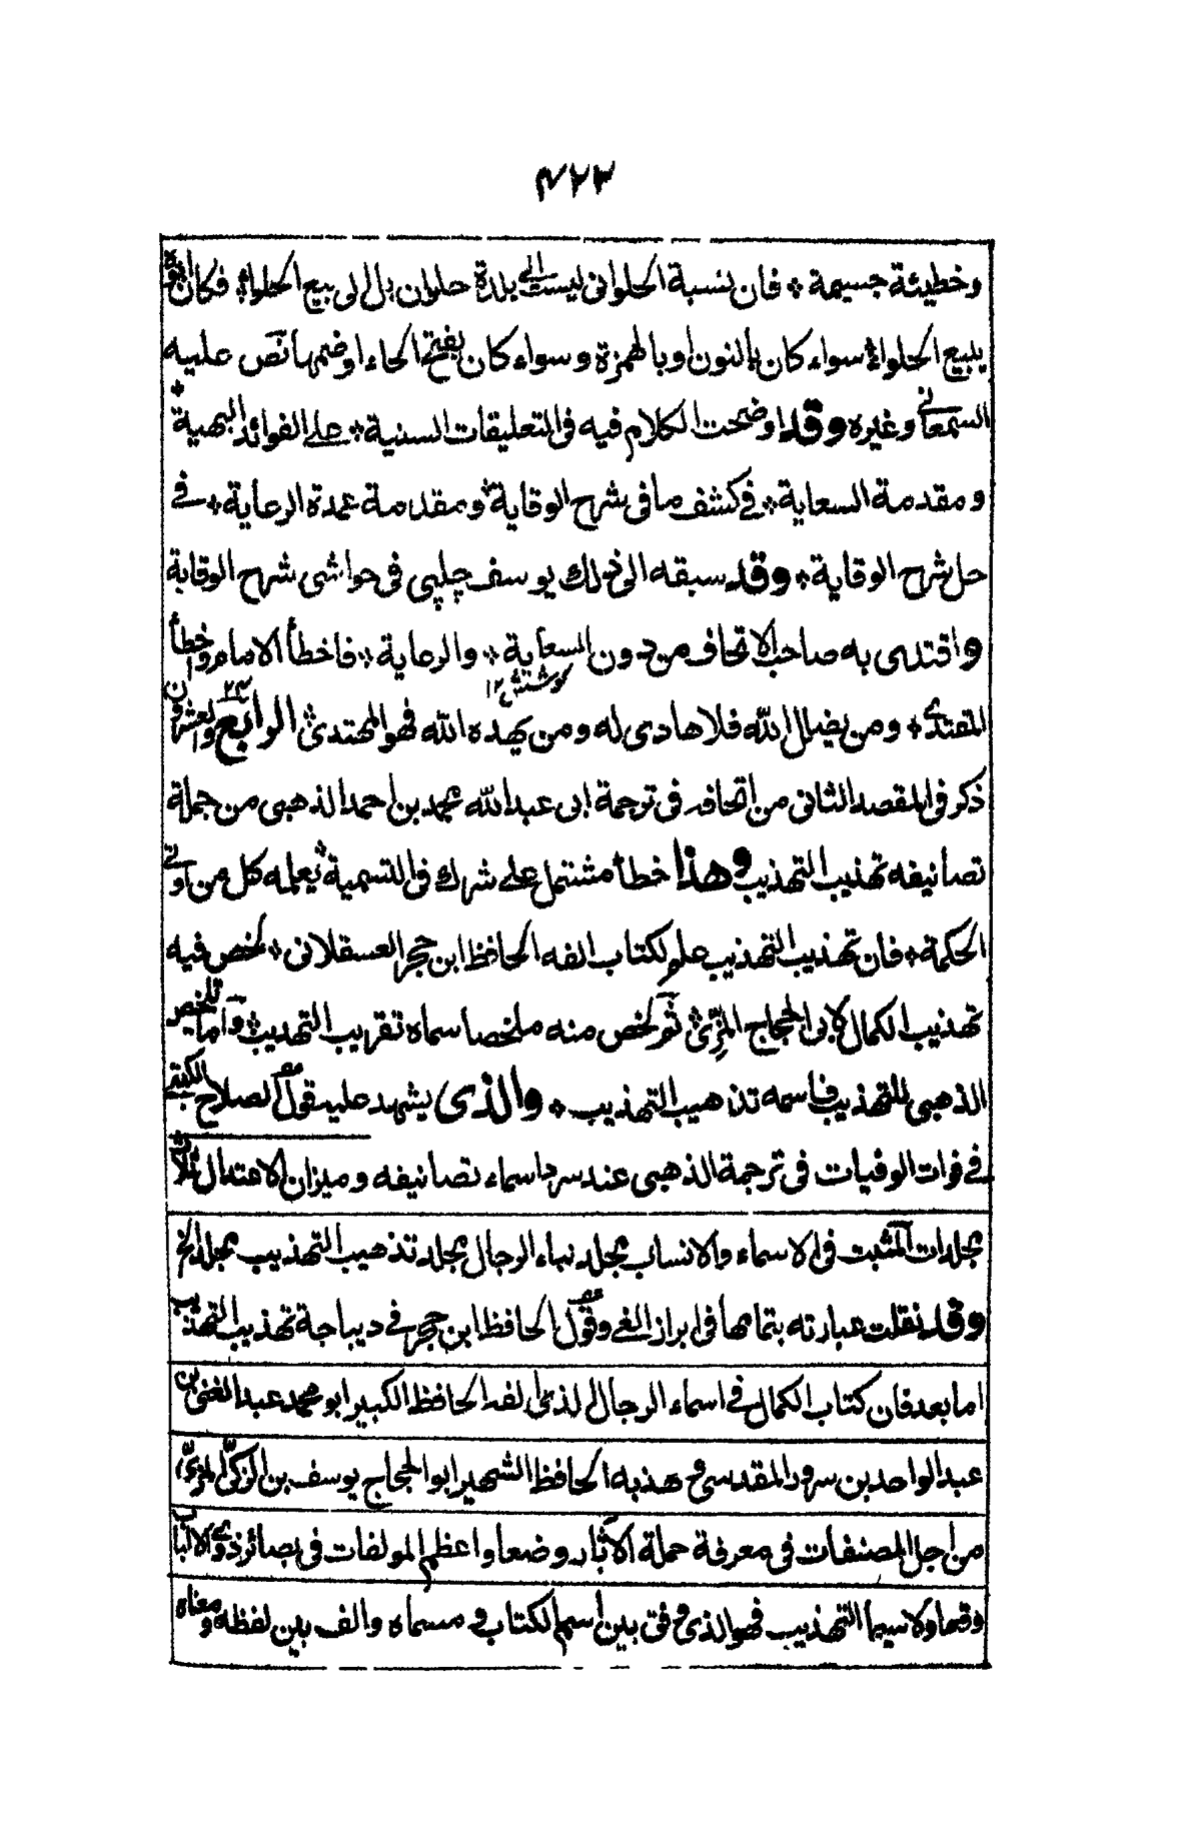 ٤٢٣
وخطيئة جسيمة * فان نسبة الحلوانى ليست الى بلدة حلوان بل الى بيع الحلواء * فكان ابوه
يبيع الحلواء * سواء كان بالنون او بالهمزة وسواء كان بفتح الحاء او ضمها نص عليه
السمعانى وغيره وقد اوضحت الكلام فيه فى التعليقات السنية * على الفوائد البهية *
ومقدمة السعاية * فى كشف ما فى شرح الوقاية * ومقدمة عمدة الرعاية * فى
حل شرح الوقاية * وقد سبقه الى ذلك يوسف چلپى فى حواشى شرح الوقاية
واقتدى به صاحب الاتحاف من دون السعاية * والرعاية * فاخطأ الامام واخطأ
كوشش ١٢
المقتدى * ومن يضلل الله فلا هادى له ومن يهده الله فهو المهتدى * الرابع والعشرون ٢٤
ذكر فى المقصد الثانى من اتحافه فى ترجمة ابى عبد الله محمد بن احمد الذهبى من جملة
تصانيفه تهذيب التهذيب وهذا خطأ مشتمل على شرك فى التسمية * يعلمه كل من اوتى
الحكمة * فان تهذيب التهذيب علم لكتاب الفه الحافظ ابن حجر العسقلانى * لخص فيه
تهذيب الكمال لابى الحجاج المزى * ثم لخص منه ملخصا سماه تقريب التهذيب * واما تلخيص
الذهبى للتهذيب فاسمه تذهيب التهذيب * والذى يشهد عليه قول الصلاح الكتبى
فى فوات الوفيات فى ترجمة الذهبى عند سرد اسماء تصانيفه وميزان الاعتدال ثلاث
مجلدات المشتبه فى الاسماء والانساب مجلد نباء الرجال مجلد تذهيب التهذيب مجلد الخ
وقد نقلت عبارته بتمامها فى ابراز الغى وقول الحافظ ابن حجر فى ديباجة تهذيب التهذيب
اما بعد فان كتاب الكمال فى اسماء الرجال الذى الفه الحافظ الكبير ابو محمد عبد الغنى بن
عبد الواحد بن سرور المقدسى وهذبه الحافظ الشهير ابو الحجاج يوسف بن الزكى المزى
من اجل المصنفات فى معرفة حملة الآثار وضعا واعظم المولفات فى بصائر ذوى الالباب
وقعا ولا سيما التهذيب فهو الذى وفق بين اسم الكتاب ومسماه والف بين لفظه ومعناه